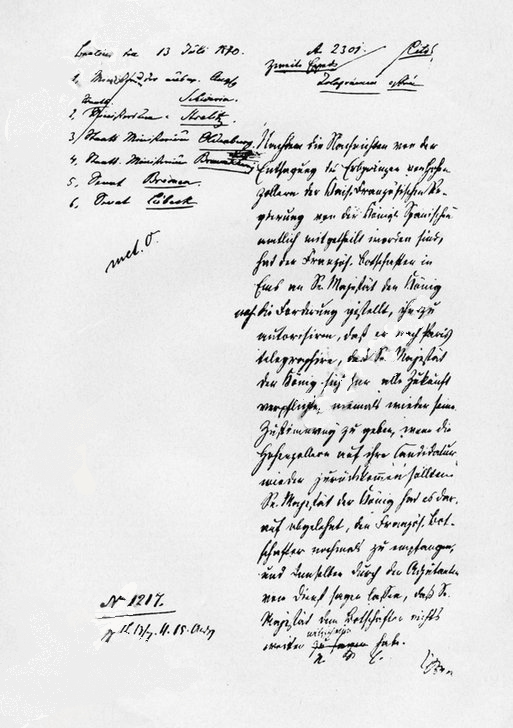 Berlin den 13 Juli 1870.
A 2301. Cito!
zweite Exped.
Telegramm
Schwerin.
2, Ministerium - Strelitz
3, Staats Ministerium Oldenburg.
4, Staats Ministerium Braunschweig
5, Senat Bremen
6, Senat Lübeck
met. 8.
Nachdem die Nachrichten von der
Entsagung des Erbprinzen von Hohen-
zollern der Kais. Französischen Re-
gierung von der Königl Spanischen
amtlich mitgetheilt worden sind,
hat der Französ. Botschafter in
Ems an Se. Majestät den König
noch die Forderung gestellt, ihn zu
autorisiren, daß er nach Paris
telegraphire, daß Se. Majestät
der König sich für alle Zukunft
verpflichte, niemals wieder seine
Zustimmung zu geben, wenn die
Hohenzollern auf ihre Candidatur
wieder zurückkommen sollten.
Se. Majestät der König hat es dar-
auf abgelehnt, den Französ. Bot-
schafter nochmals zu empfangen,
und demselben durch den Adjutanten
vom Dienst sagen lassen, daß Se.
Majestät dem Botschafter nichts
weiter mitzutheilen zu sagen habe.
No 1217.